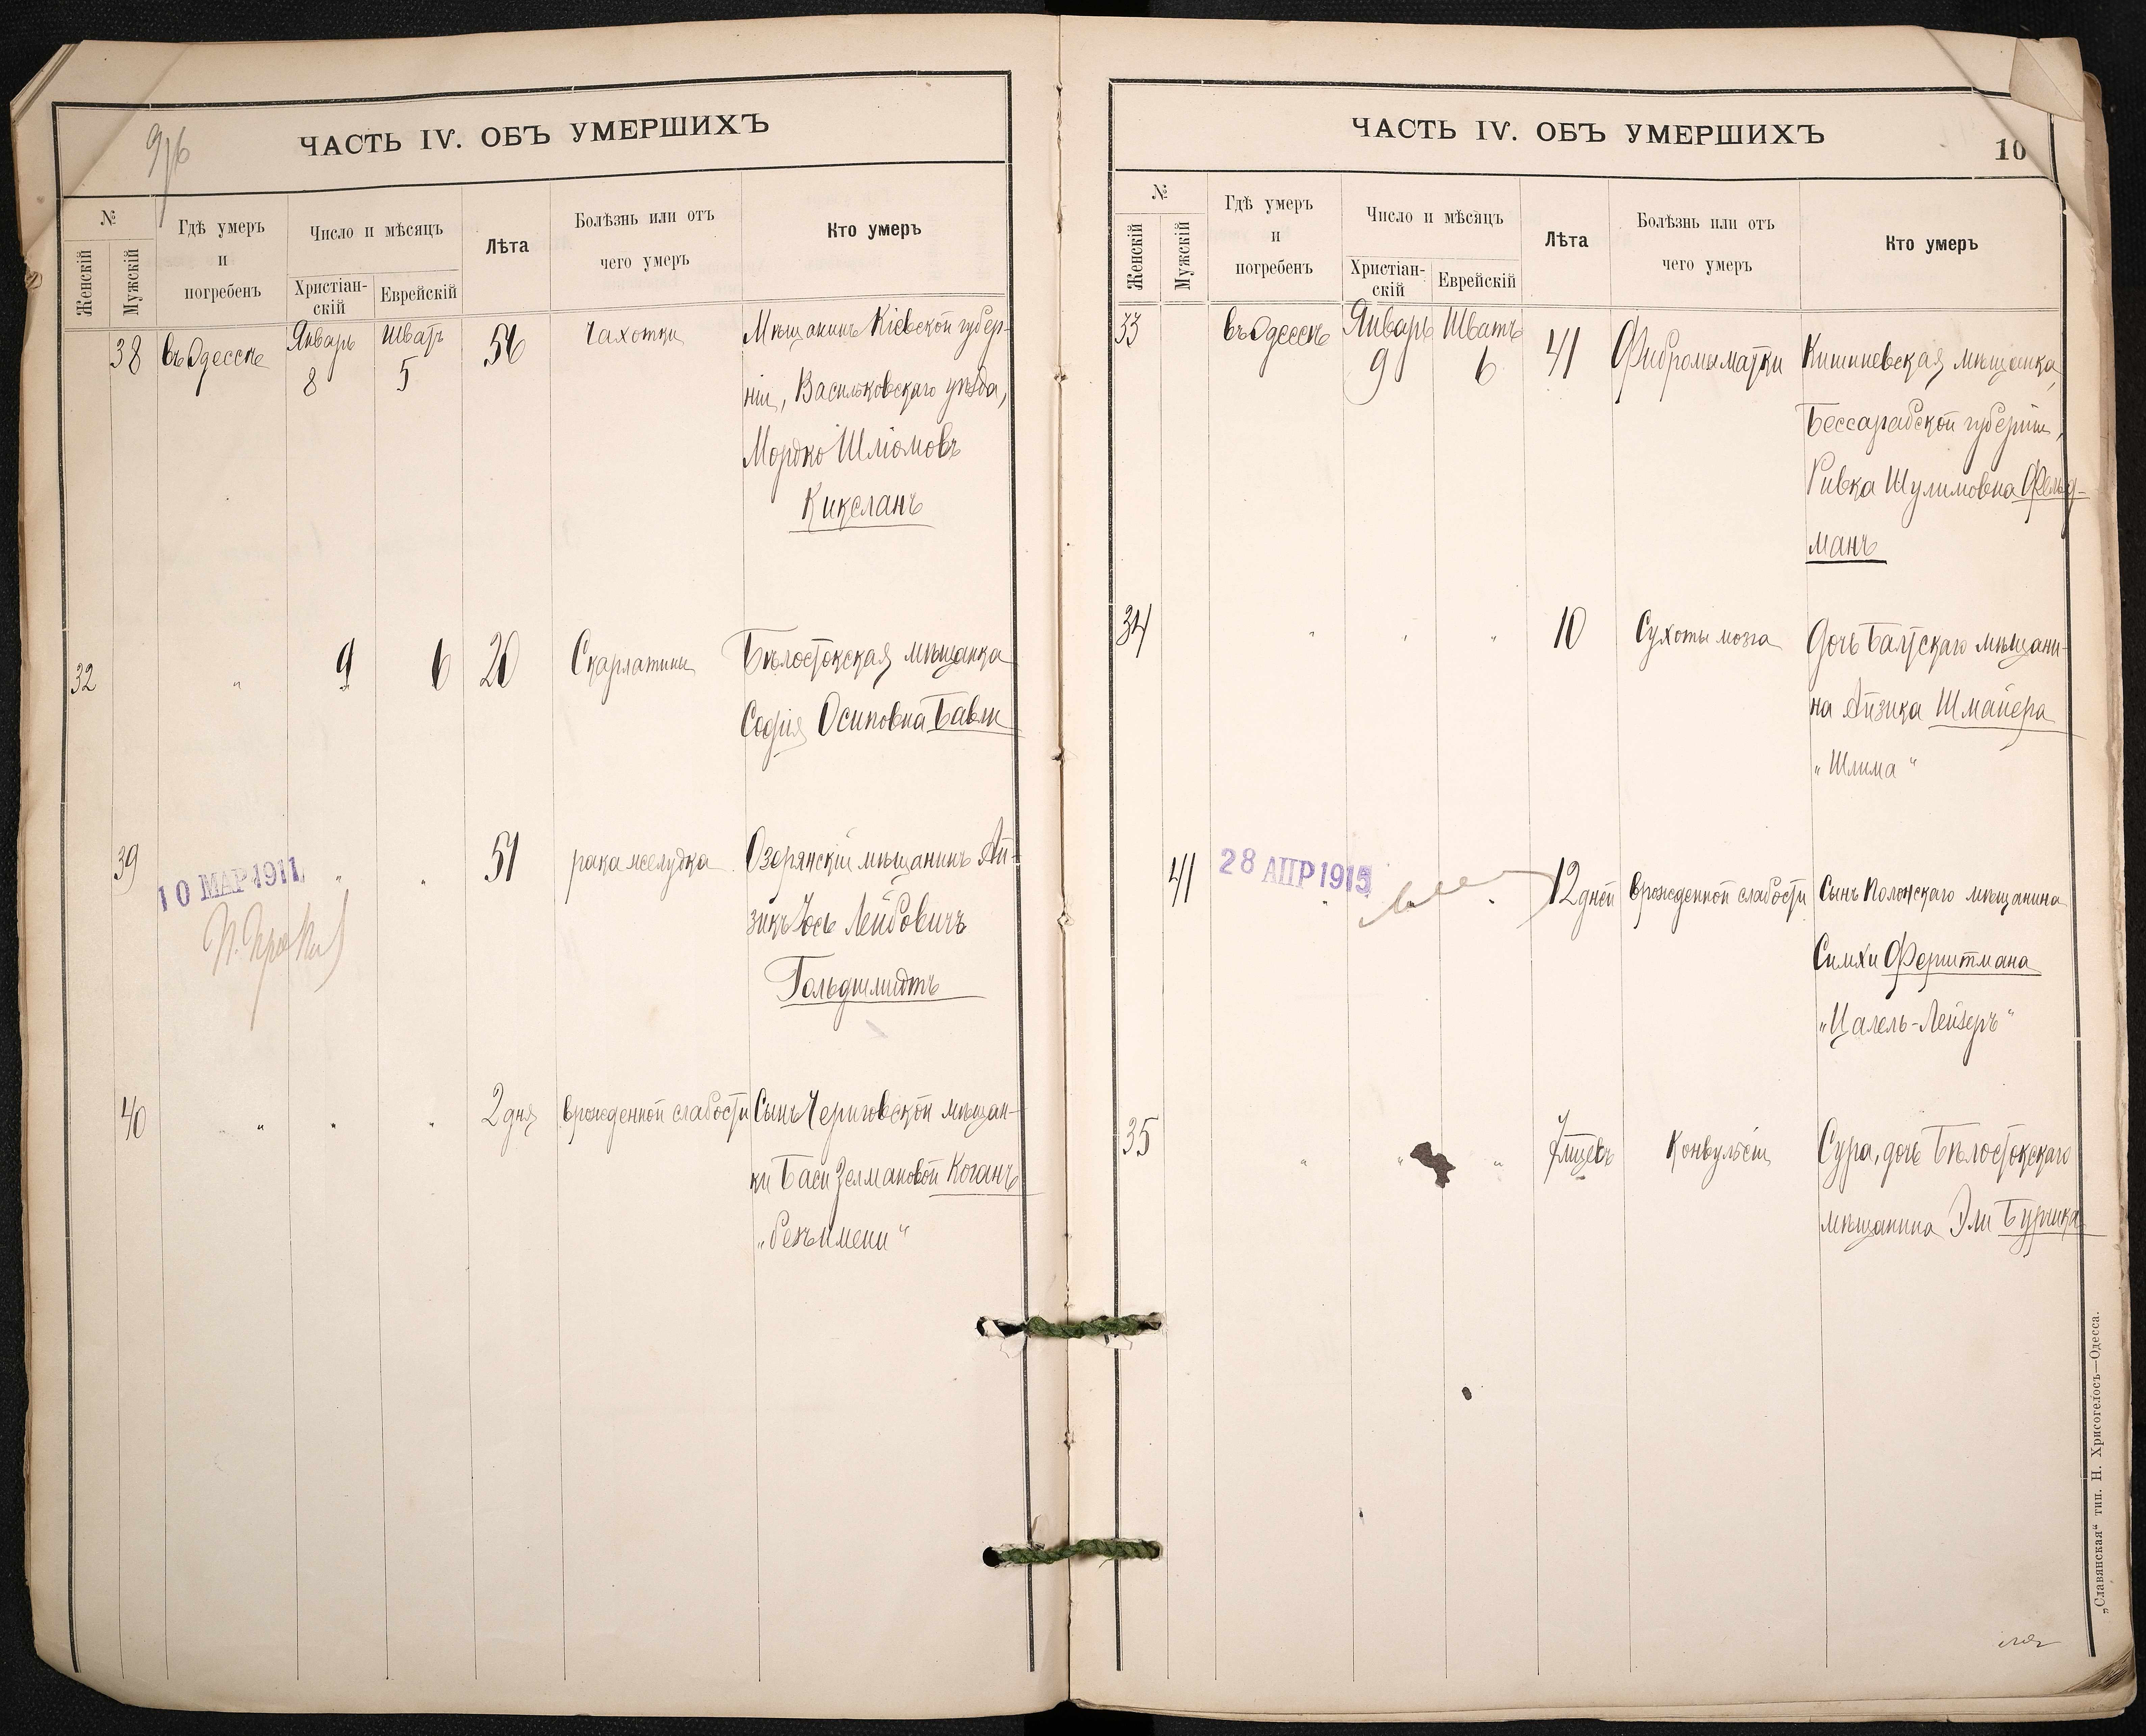 9/б
ЧАСТЬ IV. ОБЪ УМЕРШИХЪ
№
Женскій
Мужскій
Гдѣ умеръ
и
погребенъ
Число и мѣсяцъ
Христіан-
скій
Еврейскій
Лѣта
Болѣзнь или отъ
чего умеръ
Кто умеръ
38 въ Одессѣ Январь 8 Шватъ 5 56 Чахотки Мѣщанинъ Кіевской губер-
ніи, Васильковскаго уѣзда,
Мордко Шліомовъ
Кикеланъ
32 " 9 6 20 Скарлатины Бѣлостокская мѣщанка
Софія Осиповна Бавли
39 " " 51 рака желудка Озерянскій мѣщанинъ Ай-
10 МАР 1911
зикъ Іось Лейбовичъ
Гольдшмидтъ
40 " " " 2 дня врожденной слабости Сынъ Черниговской мѣщан-
ки Баси Зелмановой Коганъ
„безъ имени“
ЧАСТЬ IV. ОБЪ УМЕРШИХЪ
10
№
Женскій
Мужскій
Гдѣ умеръ
и
погребенъ
Число и мѣсяцъ
Христіан-
скій
Еврейскій
Лѣта
Болѣзнь или отъ
чего умеръ
Кто умеръ
33 въ Одессѣ Январь 9 Шватъ 6 41 Фибромы матки Кишиневская мѣщанка,
Бессарабской губерніи,
Ривка Шулимовна Фельд-
манъ
34 " " " 10 Сухоты мозга Дочь Балтскаго мѣщани-
на Айзика Шмайера
„Шлима“
28 АПР 1915
41 " " " 12 дней врожденной слабости Сынъ Полонскаго мѣщанина
Симхи Ферштмана
„Цалель-Лейзеръ“
35 " " " 7 мѣсяцевъ Конвульсіи Сура, дочь Бѣлостокскаго
мѣщанина Эли Бурчика
„Славянская“ тип. Н. Хрисогелосъ—Одесса.